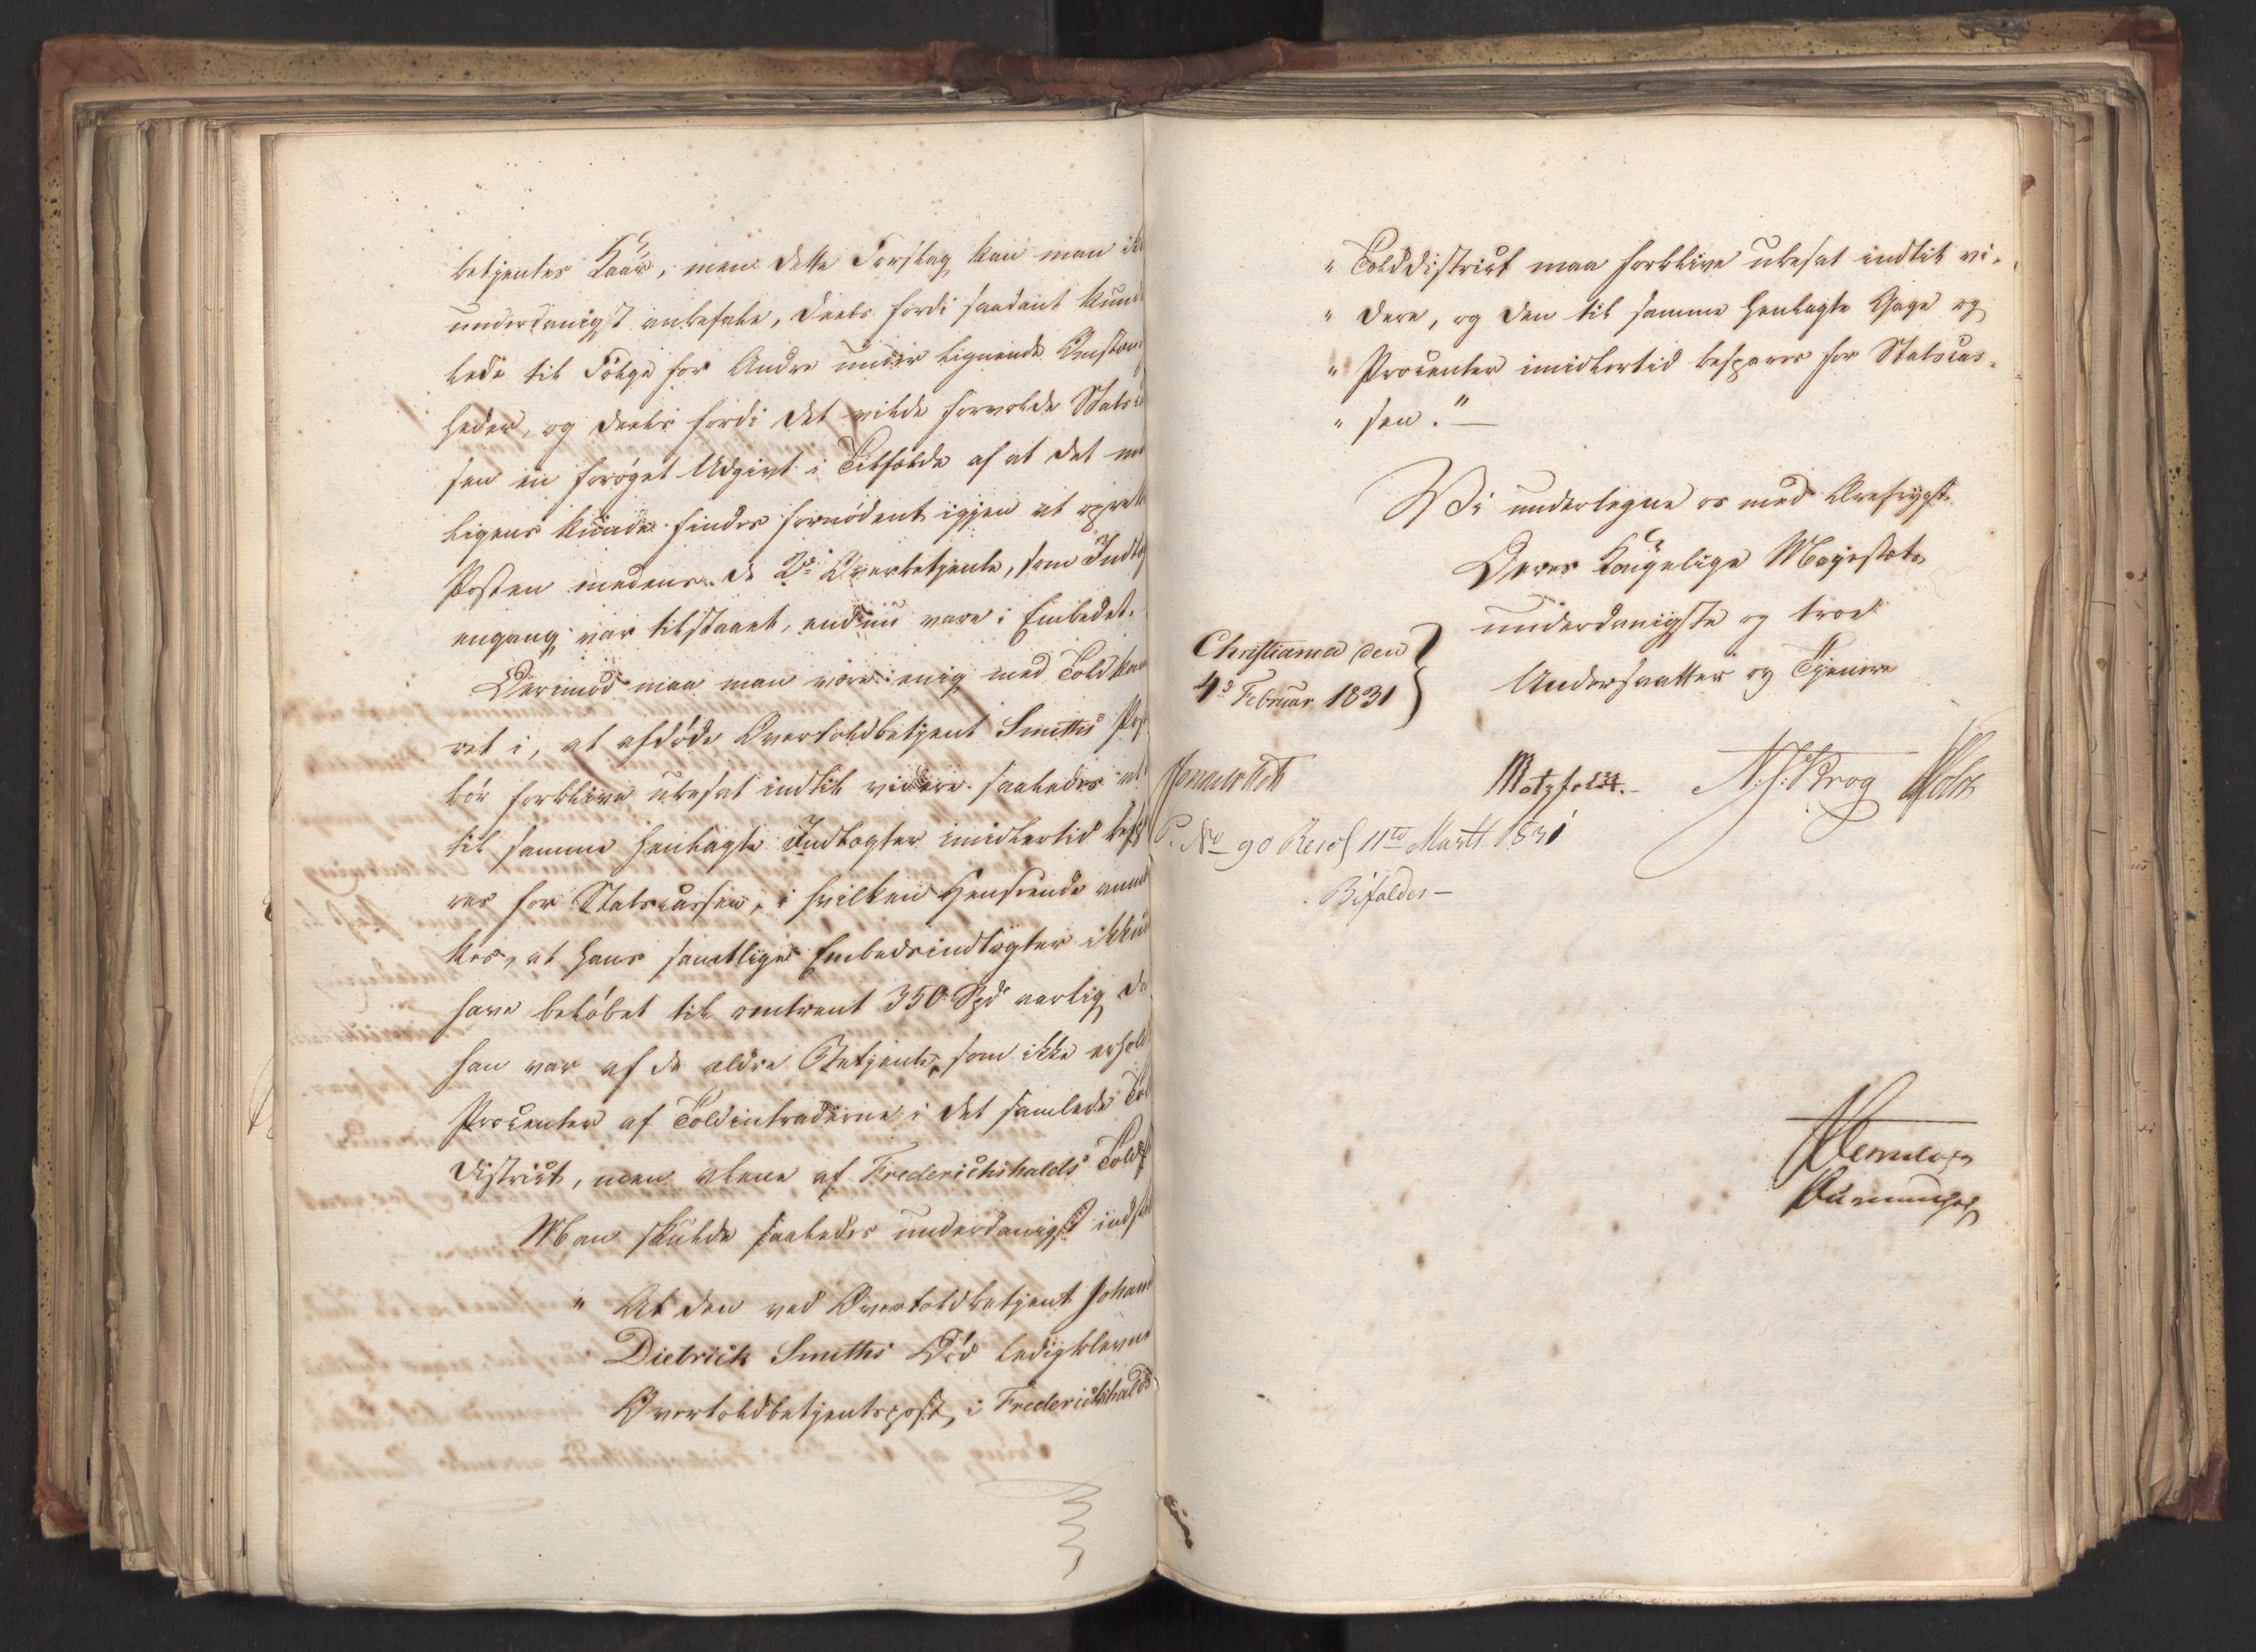 betjentes Kaar, men dette Forslag kan man ik
underdanigst anbefale, deels fordi saadant kund
lede til Følge for Andre under lignende Omstæn
heder, og deels fordi det vilde forvolde Statsca
sen en forøget Udgivt i Tilfælde af at det mu
ligens kunde findes fornødent igjen at oprett
Posten medens de 2de Overbetjente, som Indtæg
engang var tilstaaet, endnu vare i Embedet.
Derimod maa man være enig med Toldkam
ret i, at afdøde Overtoldbetjent Smiths Post
bør forblive ubesat indtil videre saaledes at
til samme henlagte Indtægter imidlertid besp
res for Statscassen, i hvilken Henseende anmær
kes, at hans samtlige Embedsindtægter ikkun
have beløbet til omtrent 350 Spd aarlig da
han var af de ældre Betjente, som ikke erholdt
Procenter af Toldintraderne i det samlede Told
district, men alene af Frederichshalds Tolds
Man skulde saaledes underdanigst indstil
" At den ved Overtoldbetjent Johan
Dietrick Smiths Død ledigblevne
Overtoldbetjentspost, i Frederichshalds
" Tolddistrict maa forblive ubesat indtil vi-
" dere, og den til samme henlagte Gage og
" Procenter imidlertid bespares for Statscas-
" sen." —
Vi underlegne os med Ærefrygt
Deres Kongelige Majestæts
underdanigste og troe
Undersaatter og Tjenere
Christiania den
4de Februar 1831
Motzfeldt. N. J. Krog Holst
P. No 90 Res. 11te Martz 1831
Bifaldes —